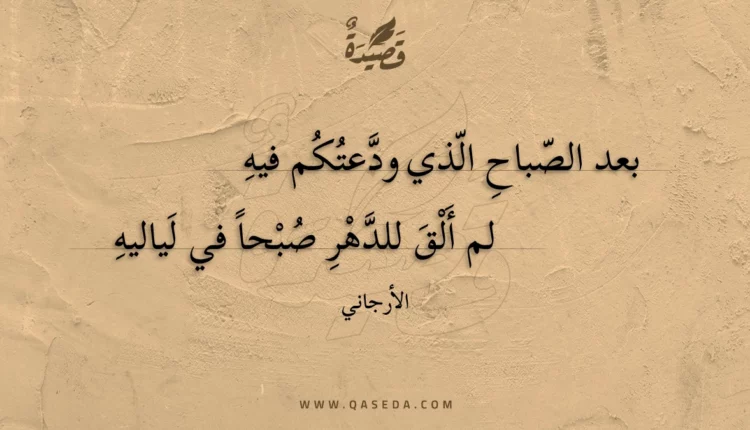 قَصِيْدَةٌ
بعد الصّباحِ الّذي ودَّعتُكُم فيهِ
لم أَلْقَ للدَّهْرِ صُبْحاً في لَياليهِ
الأرجاني
WWW.QASEDA.COM